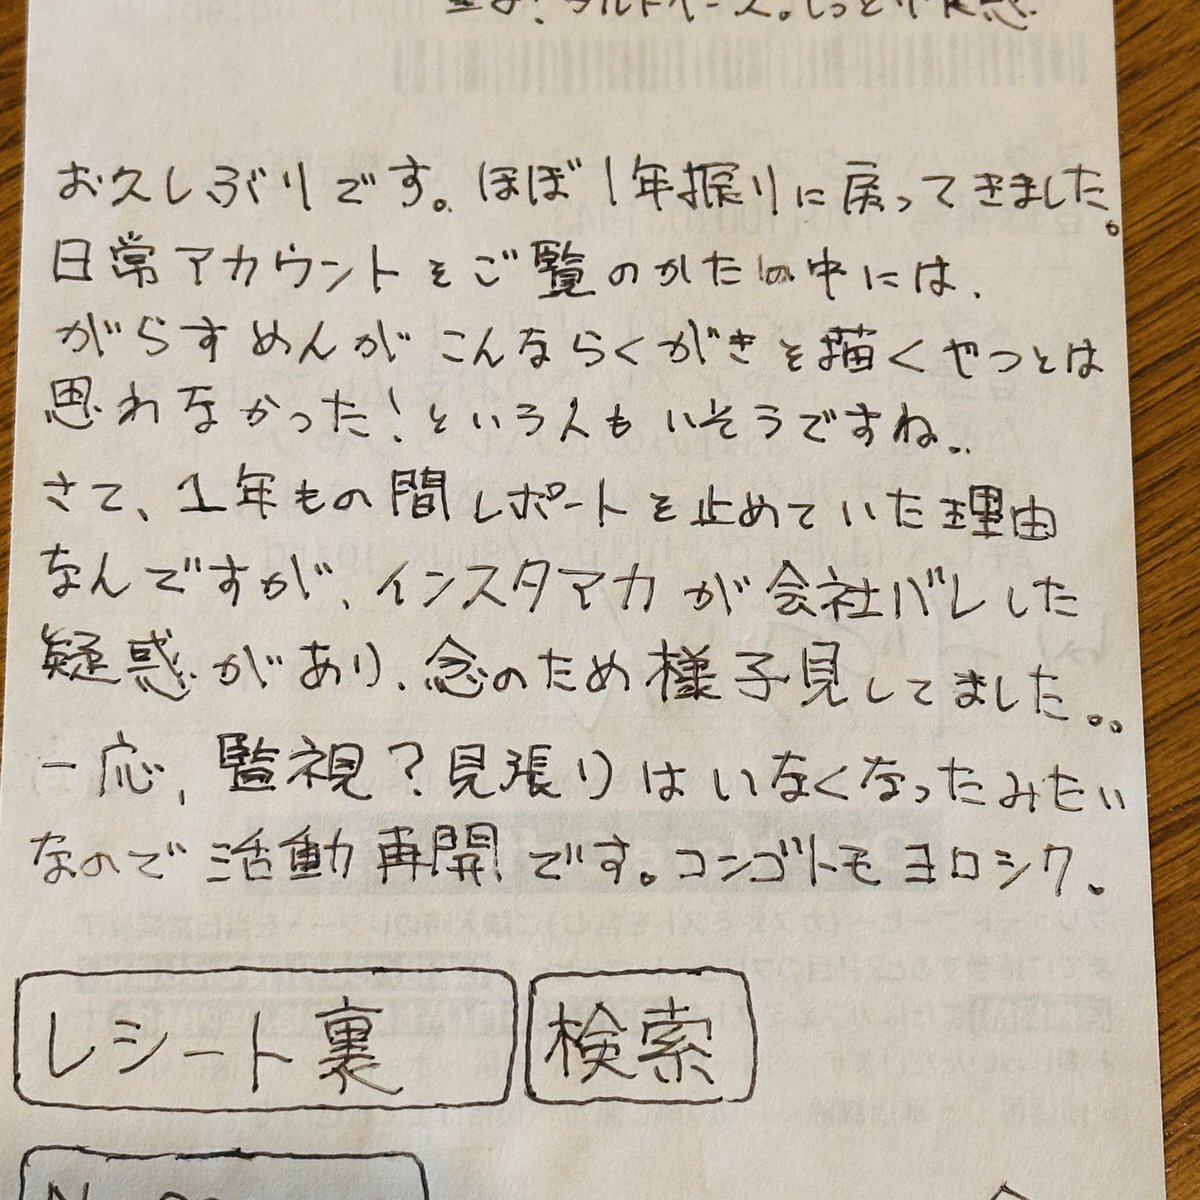 お久しぶりです。ほぼ1年振りに戻ってきました。
日常アカウントをご覧のかたの中には、
がらすめんがこんならくがきを描くやつとは
思わなかった!という人もいそうですね..
さて、1年もの間レポートを止めていた理由
なんですが、インスタアカが会社バレした
疑惑があり、念のため様子見してました。。
一応、監視?見張りはいなくなったみたい
なので活動再開です。コンゴトモヨロシク。
レシート裏 検索